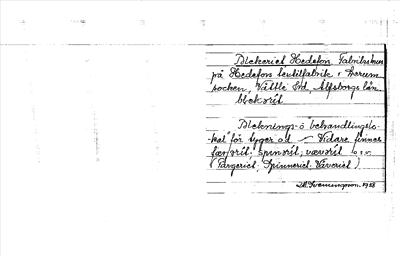 Blekeriet, Hedefors. Fabrikshus
på Hedefors textilfabrik i Lerum
socken, Vättle hd, Älfsborgs län.
blekəriit
Bleknings- o behandlingslo-
kal för tyger o.d. – Vidare finnes
færvəriit; spinəriit; vævəriit o.s.v.
(Färgeriet, Spinneriet, Väveriet)
1928